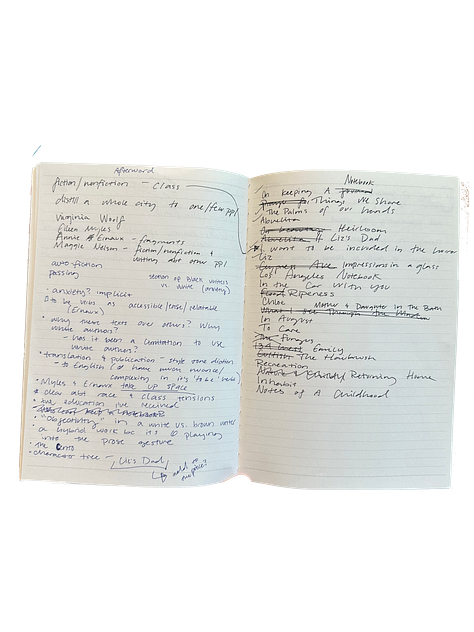 Afterword
fiction/nonfiction - class
distill a whole city to one/few ppl
Virginia Woolf
Eileen Myles
Annie Ernaux - fragments
Maggie Nelson - fiction/nonfiction &
writing abt other ppl
auto-fiction
passing
section of Black writers
vs. white (anxiety)
• anxiety? implicit
to be as accessible/
(Ernaux)
• why these texts over others? Why
white authors?
- has it been a limitation to use
white authors?
• translation & publication - style tone diction
to English (
complexity in its 
• Myles & Ernaux TAKE UP SPACE
• class abt race & class tensions
• education I've received
• "Objectivity" in a white vs. brown writer
• a hybrid work bc it's playing
into the prose gesture
• the 
• character tree - "Liz's Dad"
add to
Notebook
On keeping A
Things We Share
The Palms of our hands
Abuelita
Heirloom
Liz's Dad
I want to be included in the
Liz
Impressions in a glass
Los Angeles Notebook
In the Car with you
Ripeness
Chloe Mother & Daughter in the Bath
What I See Through the
In August
To Care
Fungus
Emily
The Hairbrush
Recreation
Returning Home
Inhabit
Notes of A Childhood